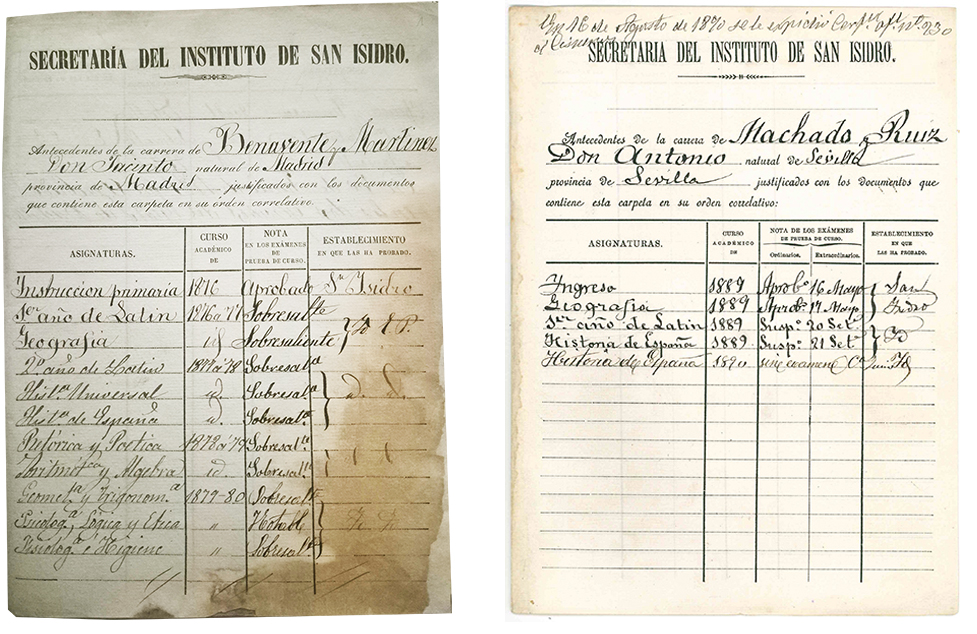 SECRETARÍA DEL INSTITUTO DE SAN ISIDRO.
Antecedentes de la carrera de Benavente y Martinez
Don Jacinto natural de Madrid
provincia de Madrid justificados con los documentos
que contiene esta carpeta en su órden correlativo.
ASIGNATURAS. CURSO ACADÉMICO DE NOTA EN LOS EXÁMENES DE PRUEBA DE CURSO. ESTABLECIMIENTO EN QUE LAS HA PROBADO.
Instruccion primaria 1876 Aprobado Sn Isidro
1er año de Latin 1876 a 77 Sobresalte
Geografia id Sobresaliente
2º año de Latin 1877 a 78 Sobresalte
Histª Universal id. Sobresalte
Histª de España id. Sobresalte
Retórica y Poética 1878 a 79 Sobresalte
Aritmética y Algebra id Sobresalte
Geometª y Trigonomª 1879-80 Sobresalte
Psicologª, Lógica y Etica " Notable
Fisiologª é Higiene " Sobresalte
En 16 de Agosto de 1890 se le expidió nº 230
SECRETARIA DEL INSTITUTO DE SAN ISIDRO.
Antecedentes de la carrera de Machado y Ruiz
Don Antonio natural de Sevilla
provincia de Sevilla justificados con los documentos que
contiene esta carpeta en su orden correlativo:
ASIGNATURAS. CURSO ACADÉMICO DE NOTA DE LOS EXÁMENES DE PRUEBA DE CURSO. Ordinarios. Extraordinarios. ESTABLECIMIENTO EN QUE LAS HA PROBADO.
Ingreso 1889 Aprobº 16 Mayo San
Geografia 1889 Aprobº 17 Mayo Isidro
1er año de Latin 1889 Suspº 20 Set
Historia de España 1889 Suspº 21 Set
Historia de España 1890